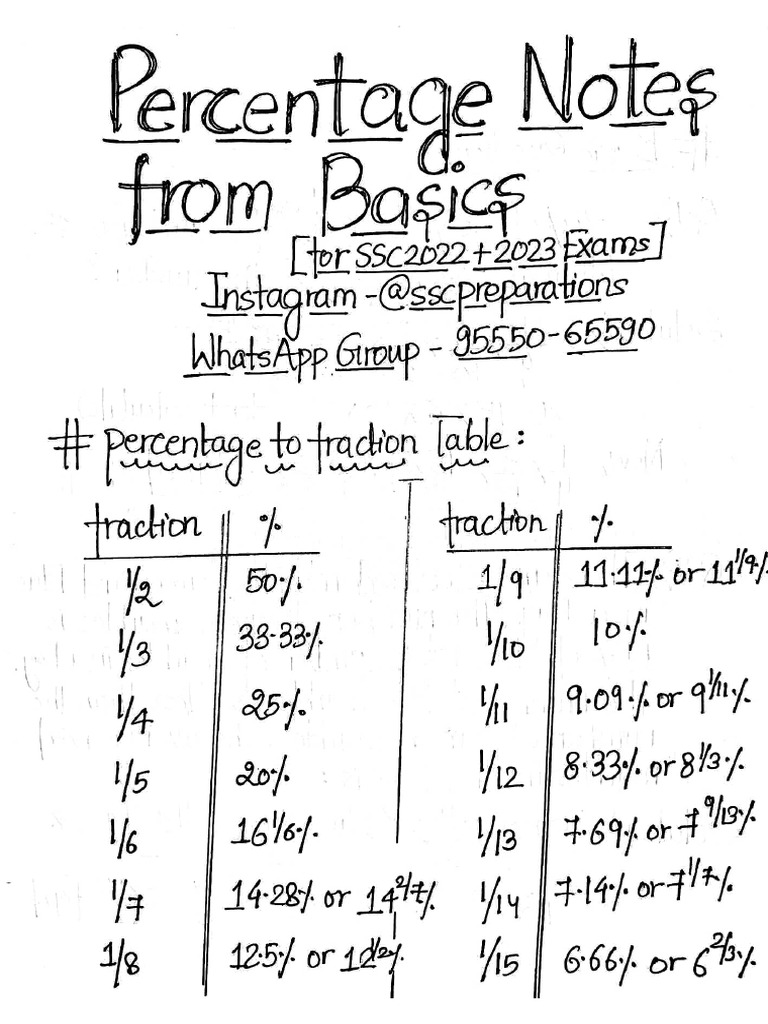 Percentage Notes
from Basics
[for SSC2022+2023 Exams]
Instagram -@sscpreparations
WhatsApp Group - 95550-65590
# Percentage to fraction Table:
fraction %
1/2 50%
1/3 33.33%
1/4 25%
1/5 20%
1/6 16 1/6%
1/7 14.28% or 14 2/7%
1/8 12.5% or 12 1/2%
fraction %
1/9 11.11% or 11 1/9%
1/10 10%
1/11 9.09% or 9 1/11%
1/12 8.33% or 8 1/3%
1/13 7.69% or 7 9/13%
1/14 7.14% or 7 1/7%
1/15 6.66% or 6 2/3%